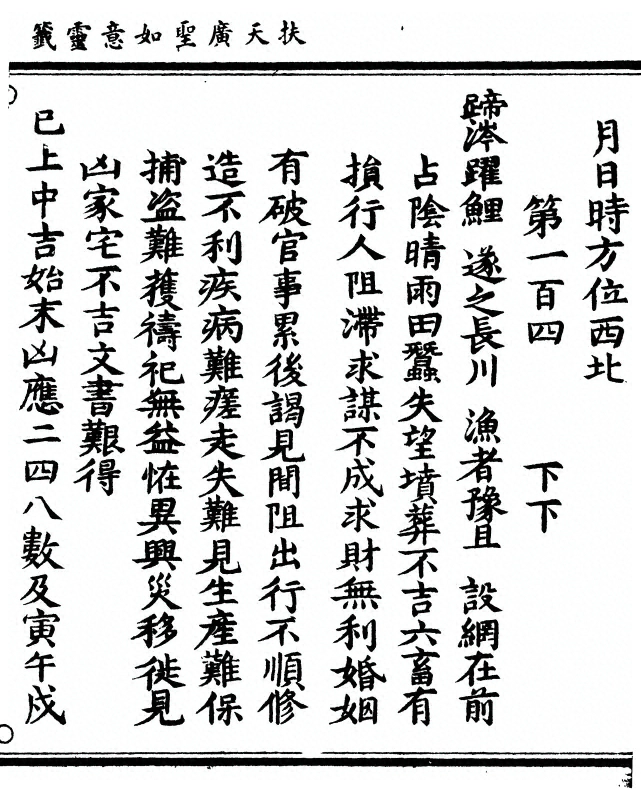 扶天廣聖如意靈籤
月日時方位西北
第一百四 下下
蹄涔躍鯉 遂之長川 漁者豫且 設網在前
占陰晴雨田蠶失望墳葬不吉六畜有
損行人阻滯求謀不成求財無利婚姻
有破官事累後謁見間阻出行不順修
造不利疾病難瘥走失難見生產難保
捕盜難獲禱祀無益恠異興災移徙見
凶家宅不吉文書艱得
已上中吉始末凶應二四八數及寅午戌